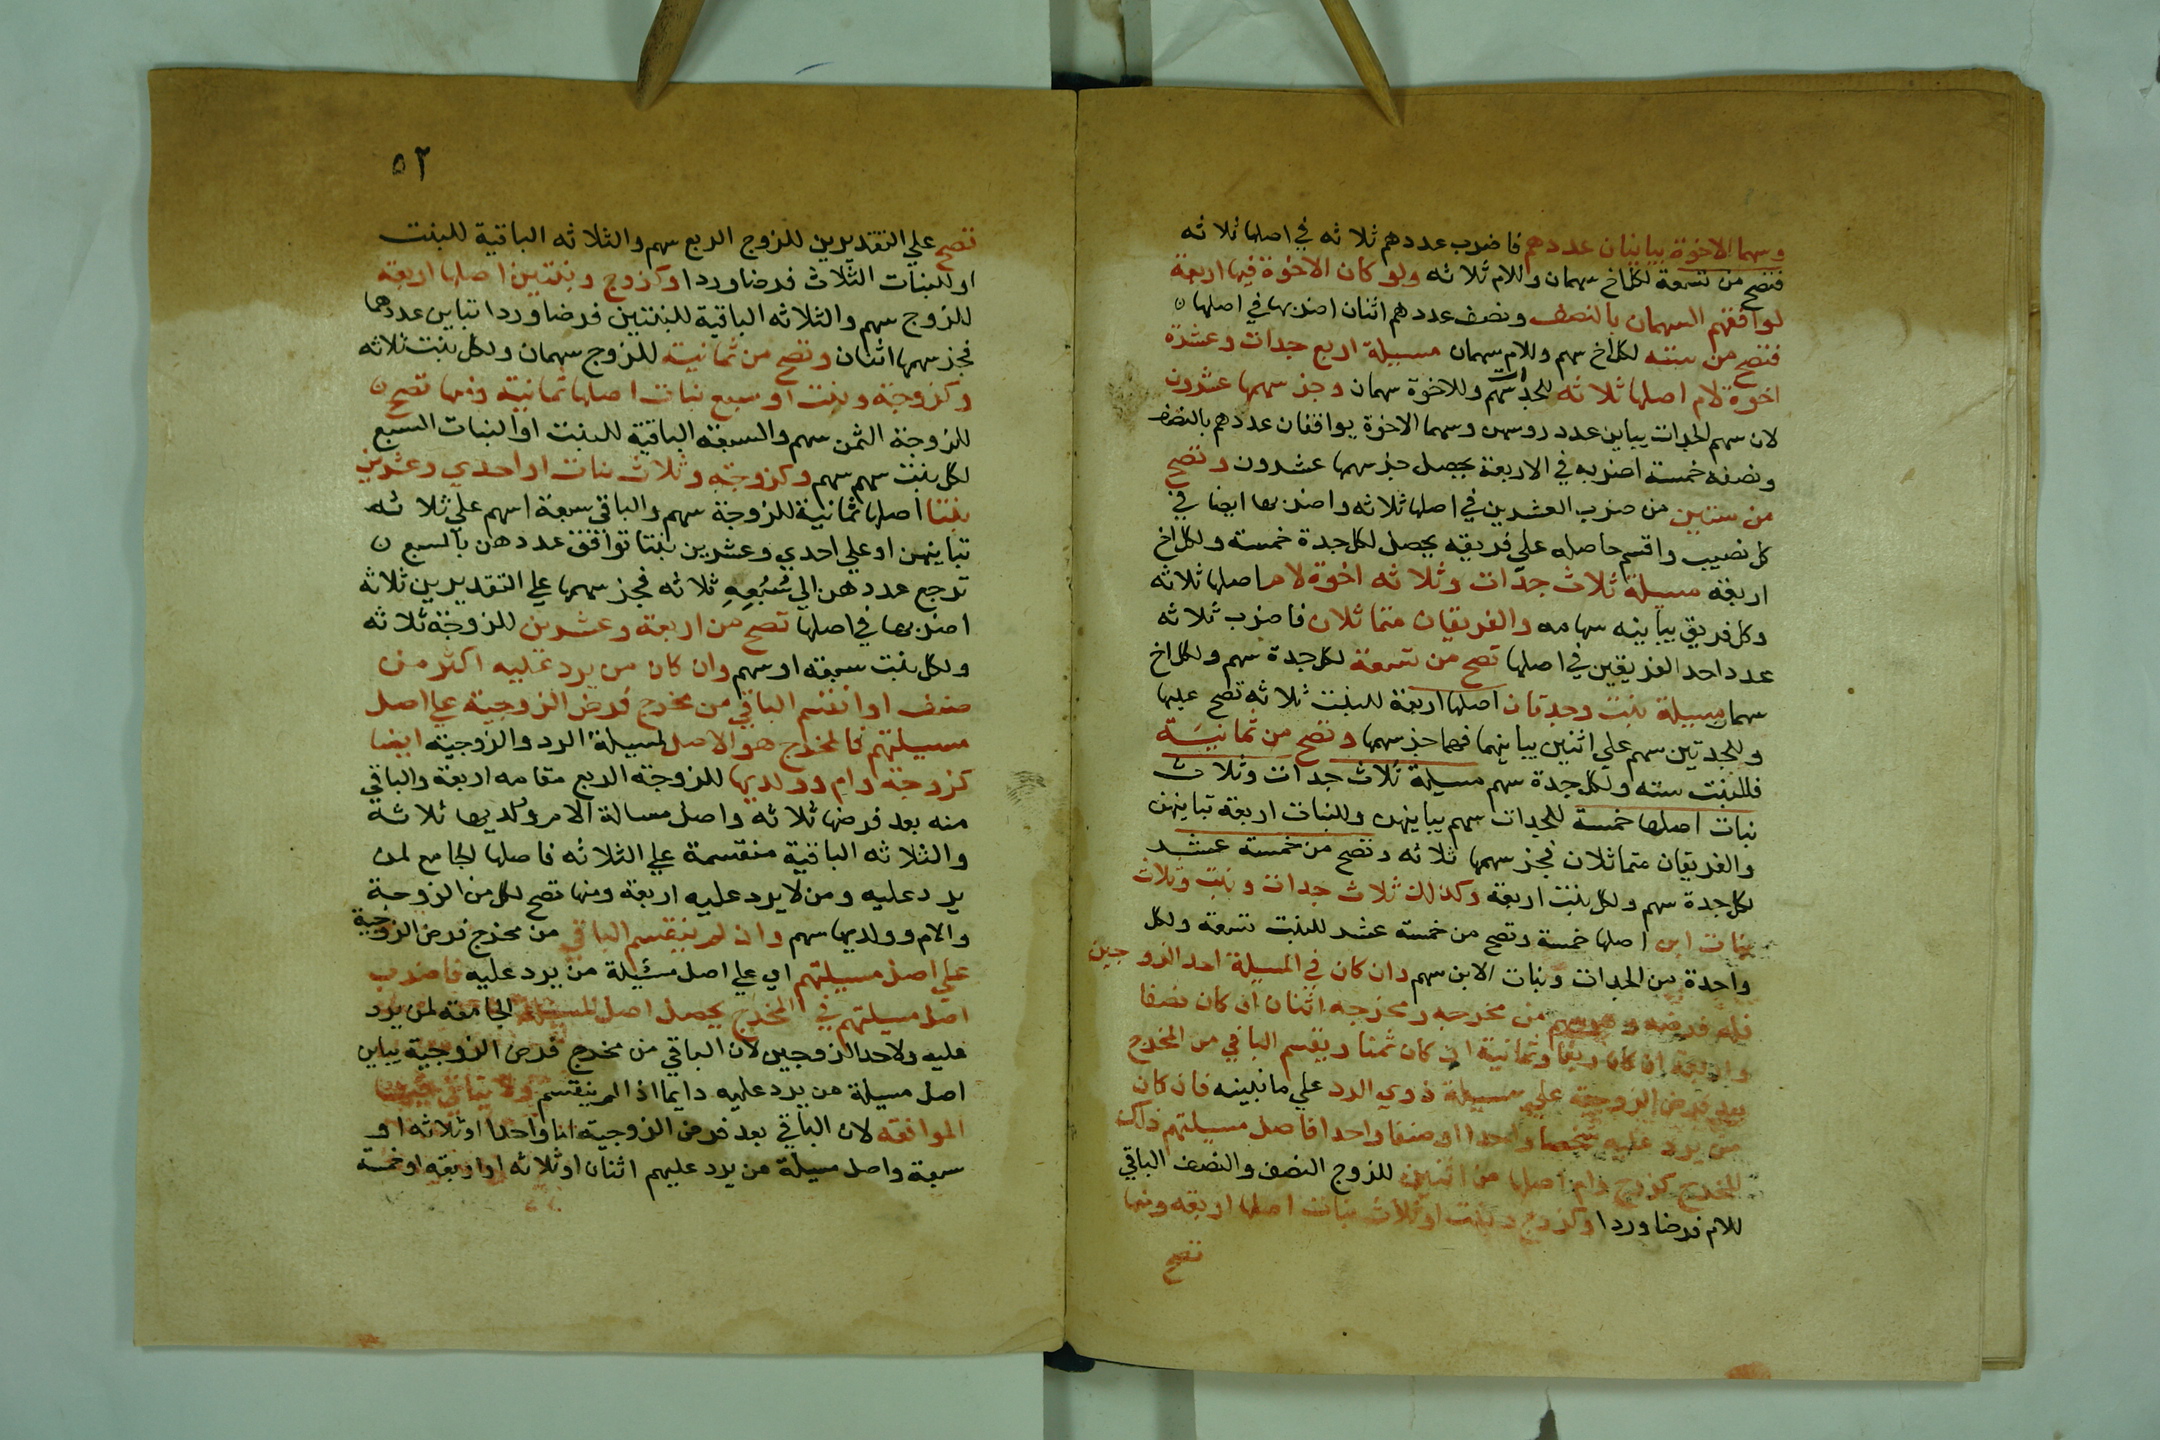 وسهما الاخوة يباينان عددهم فاضرب عددهم ثلاثه في اصلها ثلاثه
فتصح من تسعة لكل اخ سهمان وللام ثلاثه ولو كان الاخوة فيها اربعة
لوافقهم السهمان بالنصف ونصف عددهم اثنان اضربها في اصلها
فتصح من سته لكل اخ سهم وللام سهمان مسيلة اربع جدات وعشرة
اخوة لام اصلها ثلاثه للجدات سهم وللاخوة سهمان وجز سهمها عشرون
لان سهم الجدات يباين عدد روسهن وسهما الاخوة يوافقان عددهم بالنصف
ونصفه خمسة اضربه في الاربعة يحصل جز سهمها عشرون وتصح
من ستين من ضرب العشرين في اصلها ثلاثه واضربها ايضا في
كل نصيب واقسم حاصله علي فريقه يحصل لكل جدة خمسة ولكل اخ
اربعة مسيلة ثلاث جدّات وثلاثه اخوة لام اصلها ثلاثه
وكل فريق يباينه سهامه والفريقان متماثلان فاضرب ثلاثه
عدد احد الفريقين في اصلها تصح من تسعة لكل جدة سهم ولكل اخ
سهمان مسيلة بنت وجدتان اصلها اربعة للبنت ثلاثه تصح عليها
وللجدتين سهم علي اثنين يباينهما فهما جز سهمها وتصح من ثمانية
فللبنت سته ولكل جدة سهم مسيلة ثلاث جدات وثلاث
بنات اصلها خمسة للجدات سهم يباينهن وللبنات اربعة تباينهن
والفريقان متماثلان فجز سهمها ثلاثه وتصح من خمسة عشر
لكل جدة سهم ولكل بنت اربعة وكذلك ثلاث جدات وبنت وثلاث
بنات ابن اصلها خمسة وتصح من خمسة عشر للبنت تسعة ولكل
واحدة من الجدات وبنات الابن سهم وان كان في المسيلة احد الزوجين
فله فرضه من مخرجه ومخرجه اثنان ان كان نصفا
واربعة ان كان ربعا وثمانية ان كان ثمنا ويقسم الباقي من المخرج
بعد فرض الزوجية علي مسيلة ذوي الرد علي ما نبينه فان كان
من يرد عليه شخصا واحدا او صنفا واحدا فاصل مسيلتهم ذلك
المخرج كزوج وام اصلها من اثنين للزوج النصف والنصف الباقي
للام فرضا وردا وكزوج وبنت او ثلاث بنات اصلها اربعه ومنها
تصح
٥٢
تصح علي التقديرين للزوج الربع سهم والثلاثه الباقية للبنت
او للبنات الثلاث فرضا وردا وكزوج وبنتين اصلها اربعة
للزوج سهم والثلاثه الباقية للبنتين فرضا وردا تباين عددهما
فجز سهمها اثنان وتصح من ثمانية للزوج سهمان ولكل بنت ثلاثه
وكزوجة وبنت او سبع بنات اصلها ثمانية ومنها تصح
للزوجة الثمن سهم والسبعة الباقية للبنت او البنات السبع
لكل بنت سهم سهم وكزوجة وثلاث بنات او احدي وعشرين
بنتا اصلها ثمانية للزوجة سهم والباقي سبعة اسهم علي ثلاثه
تباينهن او علي احدي وعشرين بنتا توافق عددهن بالسبع
ترجع عددهن الي سُبُعِهِ ثلاثه فجز سهمها علي التقديرين ثلاثه
اضربها في اصلها تصح من اربعة وعشرين للزوجة ثلاثه
ولكل بنت سبعة او سهم وان كان من يرد عليه اكثر من
صنف او انقسم الباقي من مخرج فرض الزوجية علي اصل
مسيلتهم فالمخرج هو الاصل لمسيلة الرد والزوجية ايضا
كزوجة وام وولديها للزوجة الربع مقامه اربعة والباقي
منه بعد فرضها ثلاثه واصل مسالة الام وولديها ثلاثة
والثلاثه الباقية منقسمة علي الثلاثه فاصلها الجامع لمن
يرد عليه ومن لا يرد عليه اربعة ومنها تصح لكل من الزوجة
والام وولديها سهم وان لم ينقسم الباقي من مخرج فرض الزوجية
علي اصل مسيلتهم اي علي اصل مسيلة من يرد عليه فاضرب
اصل مسيلتهم في المخرج يحصل اصل المسيلة الجامعة لمن يرد
عليه ولاحد الزوجين لان الباقي من مخرج فرض الزوجية يباين
اصل مسيلة من يرد عليه دايما اذا لم ينقسم ولا يتاتي
الموافقة لان الباقي بعد فرض الزوجية اما واحدا او ثلاثه او
سبعة واصل مسيلة من يرد عليهم اثنان او ثلاثه او اربعه او خمسة